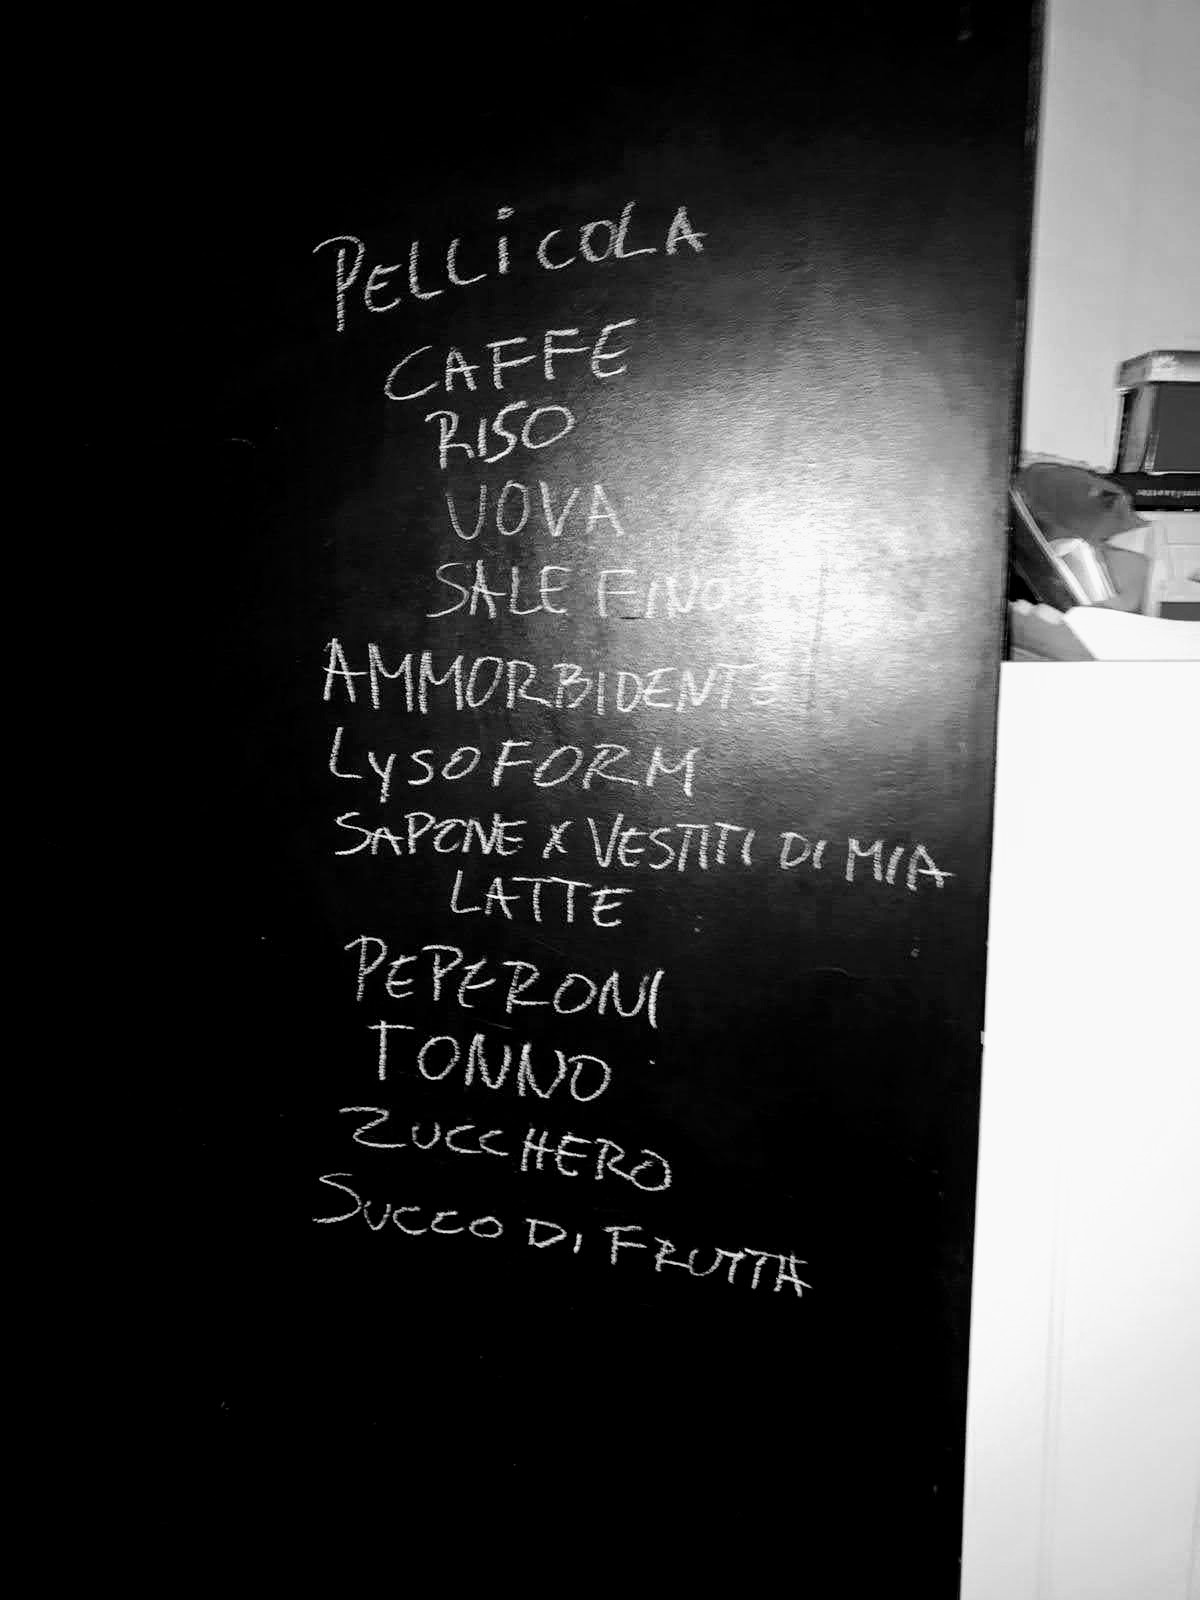 PELLiCOLA
CAFFE
RISO
UOVA
SALE FINO
AMMORBIDENTE
LySOFORM
SAPONE X VESTITI DI MIA
LATTE
PEPERONI
TONNO
ZUCCHERO
SUCCO DI FRUTTA